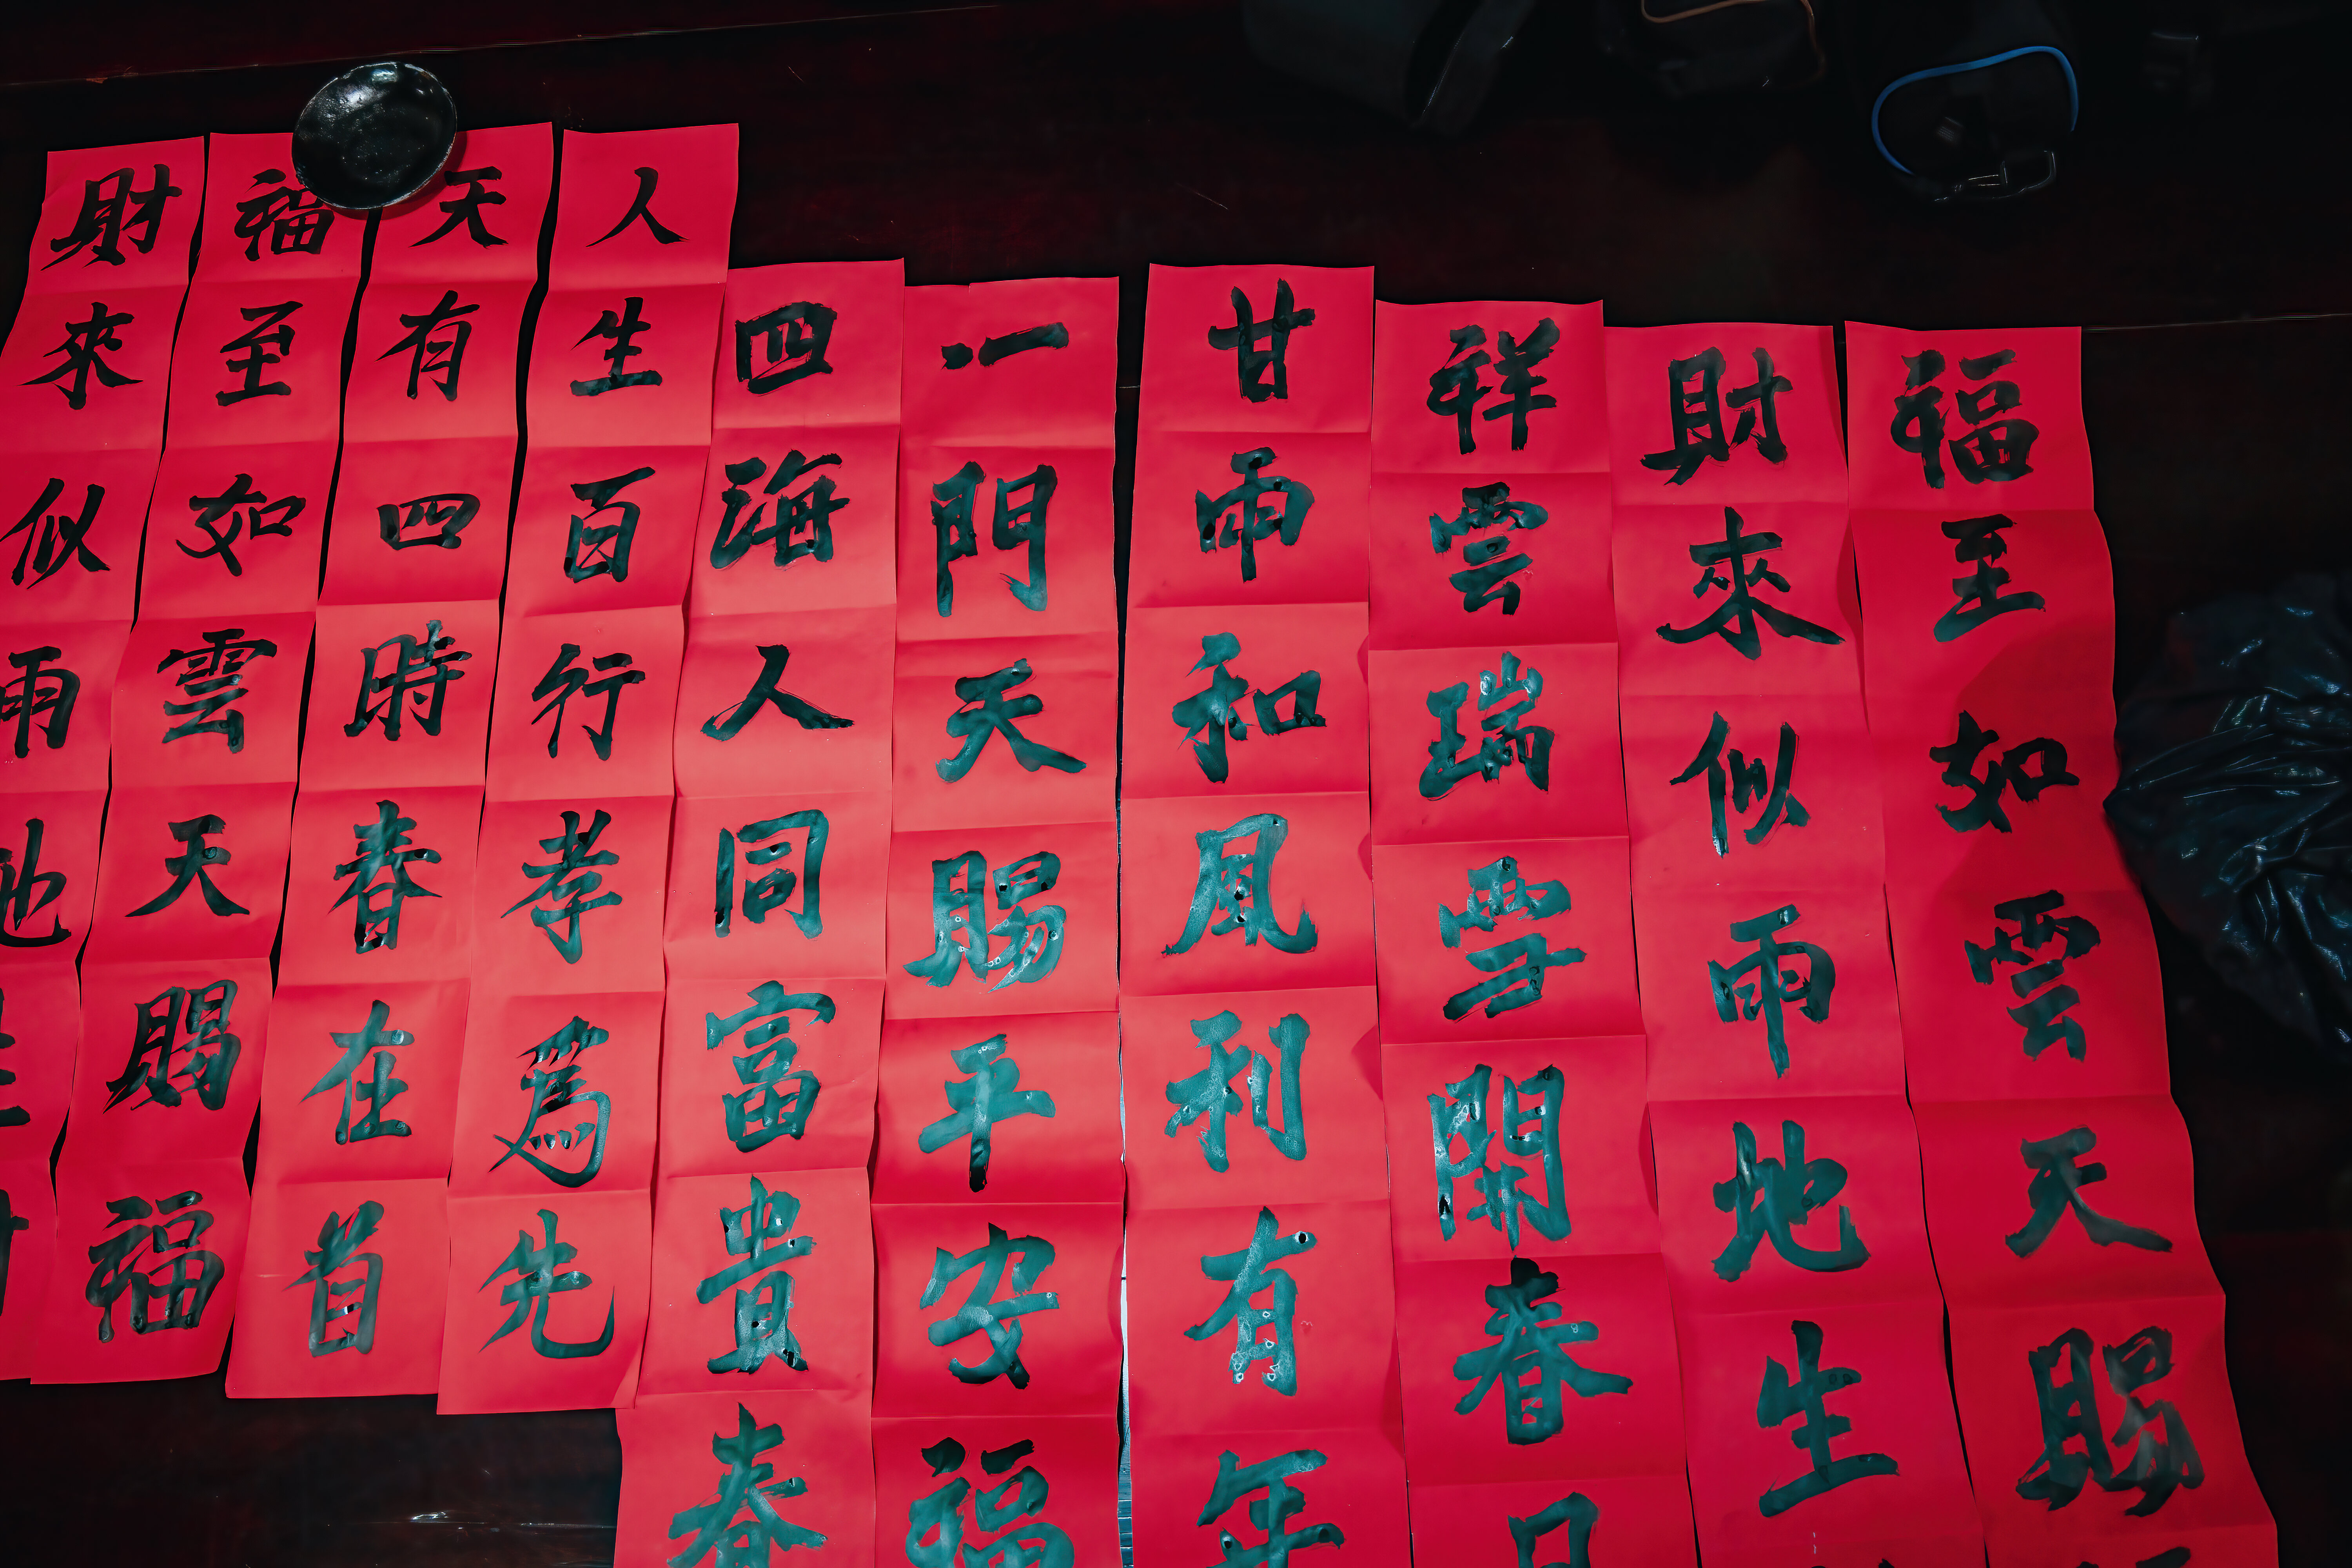 福至如雲天賜
財來似雨地生
祥雲瑞雪開春日
甘雨和風利有年
一門天賜平安福
四海人同富貴春
人生百行孝爲先
天有四時春在首
福至如雲天賜福
財來似雨地